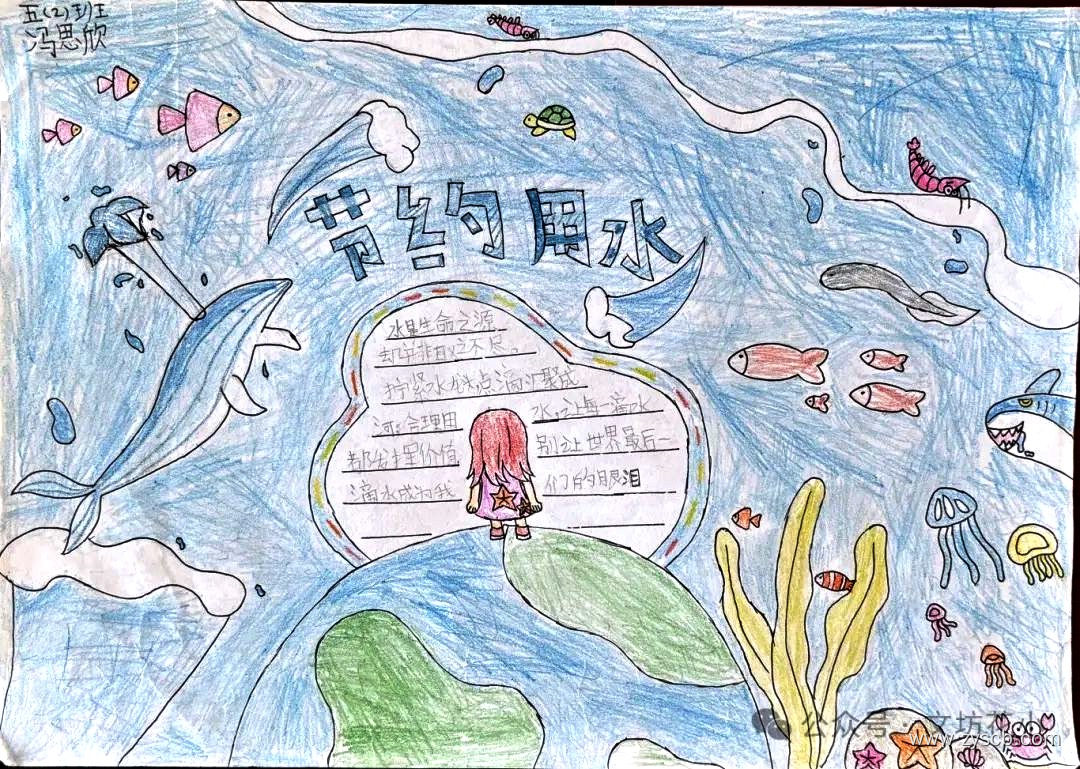 五(2)班
冯思欣
节约用水
水是生命之源
却并非取之不尽。
拧紧水 点滴汇聚成
河：合理用水，让每一滴水
都发挥价值 别让世界最后一
滴水成为我们的眼泪
公众号·文坊
www.zyscb.com